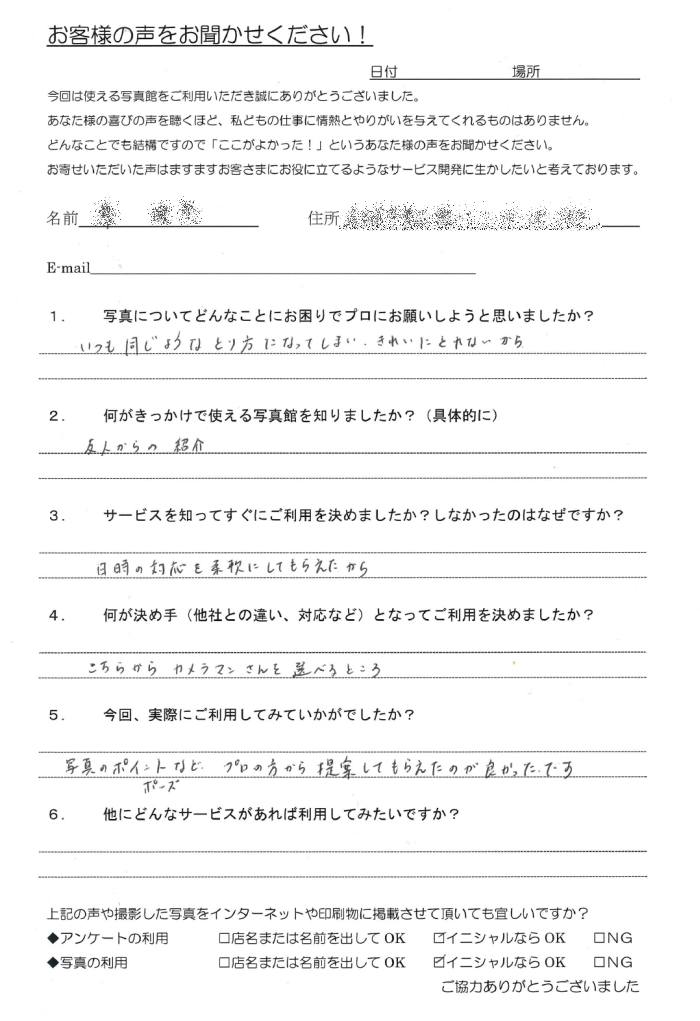 お客様の声をお聞かせください！
日付 場所
今回は使える写真館をご利用いただき誠にありがとうございました。
あなた様の喜びの声を聴くほど、私どもの仕事に情熱とやりがいを与えてくれるものはありません。
どんなことでも結構ですので「ここがよかった！」というあなた様の声をお聞かせください。
お寄せいただいた声はますますお客さまにお役に立てるようなサービス開発に生かしたいと考えております。
名前 住所
E-mail
1． 写真についてどんなことにお困りでプロにお願いしようと思いましたか？
いつも同じようなとり方になってしまい、きれいにとれないから
2． 何がきっかけで使える写真館を知りましたか？（具体的に）
友人からの 紹介
3． サービスを知ってすぐにご利用を決めましたか？しなかったのはなぜですか？
日時の対応を柔軟にしてもらえたから
4． 何が決め手（他社との違い、対応など）となってご利用を決めましたか？
こちらから カメラマンさんを 選べるところ
5． 今回、実際にご利用してみていかがでしたか？
写真のポイントなど、プロの方から提案してもらえたのが良かったです
ポーズ
6． 他にどんなサービスがあれば利用してみたいですか？
上記の声や撮影した写真をインターネットや印刷物に掲載させて頂いても宜しいですか？
◆アンケートの利用 □店名または名前を出して OK ☑イニシャルなら OK □NG
◆写真の利用 □店名または名前を出して OK ☑イニシャルなら OK □NG
ご協力ありがとうございました